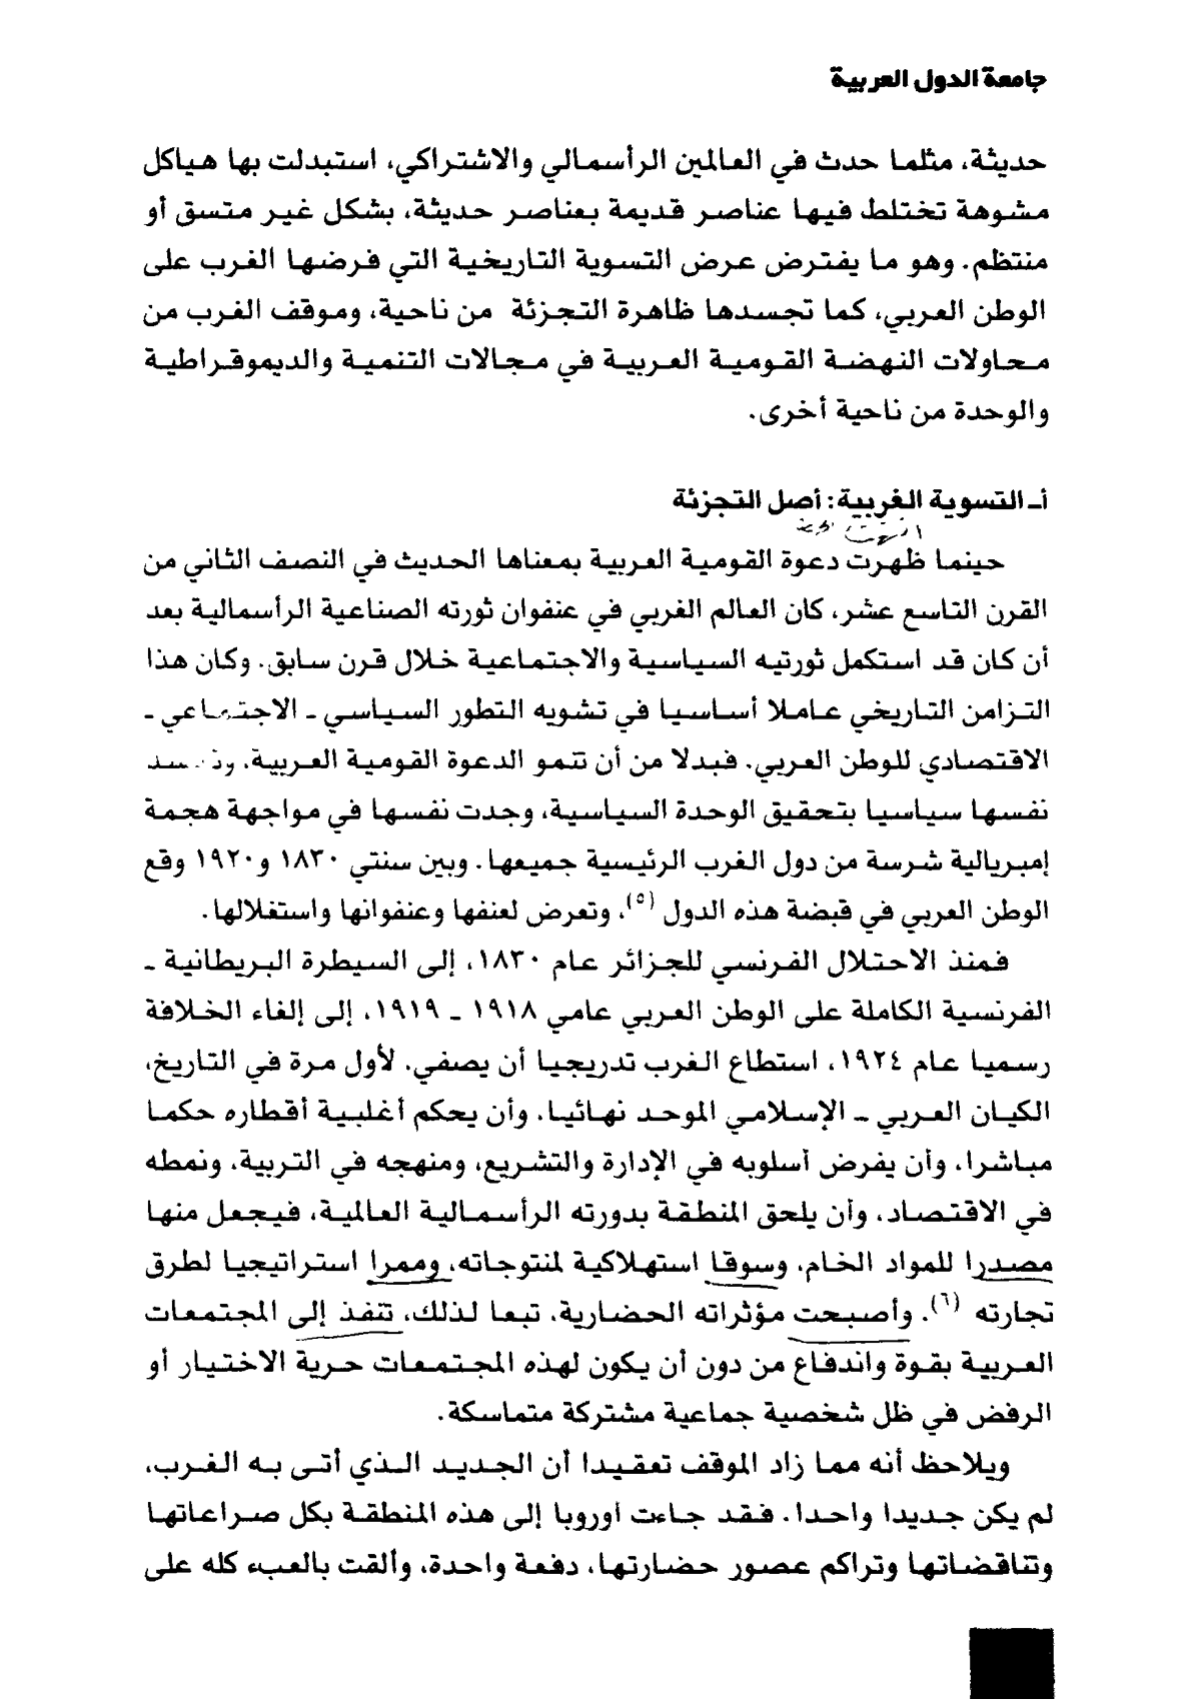 جامعة الدول العربية
حديثة، مثلما حدث في العالمين الرأسمالي والاشتراكي، استبدلت بها هياكل
مشوهة تختلط فيها عناصر قديمة بعناصر حديثة، بشكل غير متسق أو
منتظم. وهو ما يفترض عرض التسوية التاريخية التي فرضها الغرب على
الوطن العربي، كما تجسدها ظاهرة التجزئة من ناحية، وموقف الغرب من
محاولات النهضة القومية العربية في مجالات التنمية والديموقراطية
والوحدة من ناحية أخرى.
أـ التسوية الغربية: أصل التجزئة
حينما ظهرت دعوة القومية العربية بمعناها الحديث في النصف الثاني من
القرن التاسع عشر، كان العالم الغربي في عنفوان ثورته الصناعية الرأسمالية بعد
أن كان قد استكمل ثورتيه السياسية والاجتماعية خلال قرن سابق. وكان هذا
التزامن التاريخي عاملا أساسيا في تشويه التطور السياسي ـ الاجتماعي ـ
الاقتصادي للوطن العربي. فبدلا من أن تنمو الدعوة القومية العربية،
نفسها سياسيا بتحقيق الوحدة السياسية، وجدت نفسها في مواجهة هجمة
إمبريالية شرسة من دول الغرب الرئيسية جميعها. وبين سنتي ١٨٣٠ و١٩٢٠ وقع
الوطن العربي في قبضة هذه الدول (٥)، وتعرض لعنفها وعنفوانها واستغلالها.
فمنذ الاحتلال الفرنسي للجزائر عام ١٨٣٠، إلى السيطرة البريطانية ـ
الفرنسية الكاملة على الوطن العربي عامي ١٩١٨ ـ ١٩١٩، إلى إلغاء الخلافة
رسميا عام ١٩٢٤، استطاع الغرب تدريجيا أن يصفي، لأول مرة في التاريخ،
الكيان العربي ـ الإسلامي الموحد نهائيا، وأن يحكم أغلبية أقطاره حكما
مباشرا، وأن يفرض أسلوبه في الإدارة والتشريع، ومنهجه في التربية، ونمطه
في الاقتصاد، وأن يلحق المنطقة بدورته الرأسمالية العالمية، فيجعل منها
مصدرا للمواد الخام، وسوقا استهلاكية لمنتوجاته، وممرا استراتيجيا لطرق
تجارته (٦). وأصبحت مؤثراته الحضارية، تبعا لذلك، تنفذ إلى المجتمعات
العربية بقوة واندفاع من دون أن يكون لهذه المجتمعات حرية الاختيار أو
الرفض في ظل شخصية جماعية مشتركة متماسكة.
ويلاحظ أنه مما زاد الموقف تعقيدا أن الجديد الذي أتى به الغرب،
لم يكن جديدا واحدا. فقد جاءت أوروبا إلى هذه المنطقة بكل صراعاتها
وتناقضاتها وتراكم عصور حضارتها، دفعة واحدة، وألقت بالعبء كله على